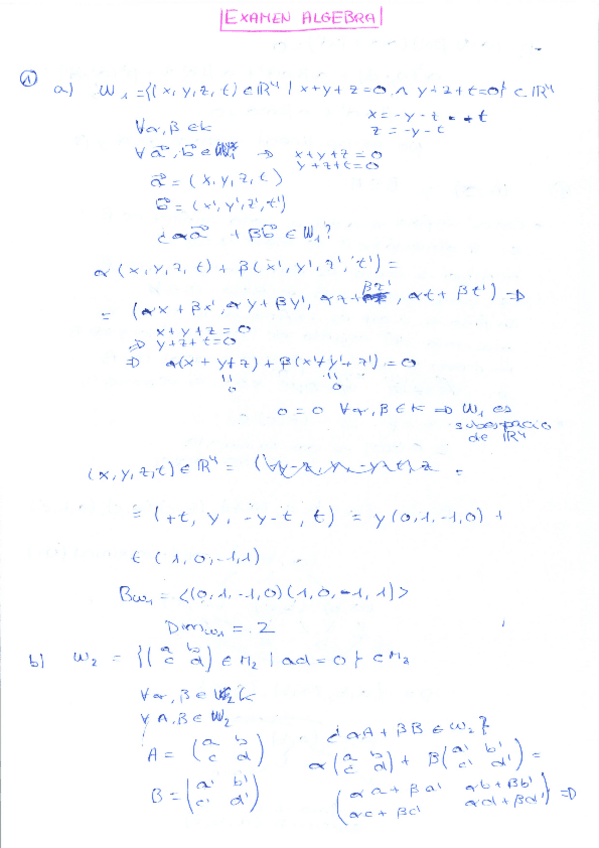 EXAMEN ALGEBRA
① a) W₁ = {(x, y, z, t) ∈ ℝ⁴ | x+y+z=0 ∧ y+z+t=0} ⊂ ℝ⁴
x = -y - z = +t
z = -y - t
∀α, β ∈ k
∀ a⃗, b⃗ ∈ W₁ ⇒ x+y+z=0
y+z+t=0
a⃗ = (x, y, z, t)
b⃗ = (x', y', z', t')
¿αa⃗ + βb⃗ ∈ W₁?
α(x, y, z, t) + β(x', y', z', t') =
= (αx + βx', αy + βy', αz + βz', αt + βt') ⇒
x+y+z=0
⇒ y+z+t=0
⇒ α(x+y+z) + β(x'+y'+z') = 0
= 0 = 0
0 = 0 ∀α, β ∈ k ⇒ W₁ es
subespacio
de ℝ⁴
(x, y, z, t) ∈ ℝ⁴ =
= (+t, y, -y-t, t) = y(0, 1, -1, 0) +
t(1, 0, -1, 1)
Bw₁ = <(0, 1, -1, 0)(1, 0, -1, 1)>
Dim w₁ = 2
b) W₂ = {(a b
c d) ∈ M₂ | ad = 0} ⊂ M₂
∀α, β ∈ k
∀A, B ∈ W₂
¿αA + βB ∈ W₂?
A = (a b
c d)
α(a b
c d) + β(a' b'
c' d') =
B = (a' b'
c' d')
(αa + βa' αb + βb'
αc + βc' αd + βd') ⇒